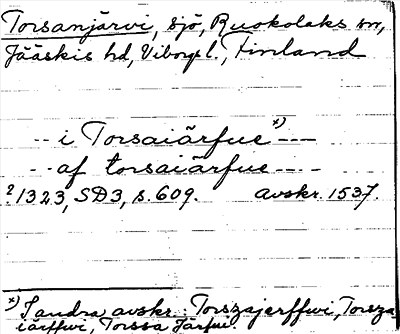 Torsanjärvi, sjö, Ruokolaks sn,
Jääskis hd, Viborgs l., Finland
-- i Torsaiärfue x) ---
-- af torsaiärfue ----
? 1323, SD3, s. 609. avskr. 1537.
x) I andra avskr.: Torszajerffwi, Torsza
iärffwi, Torssa Järfui.